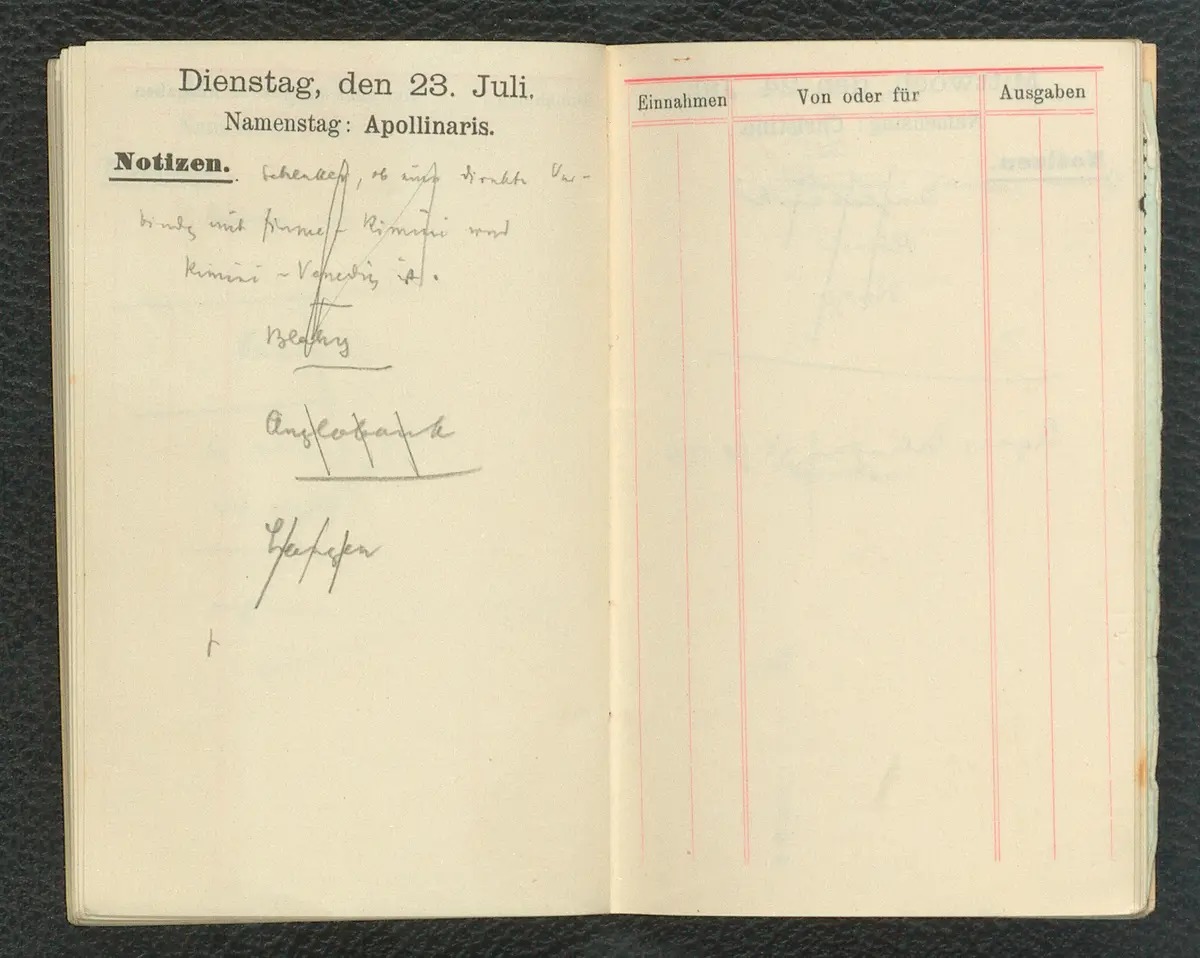 Dienstag, den 23. Juli.
Namenstag: Apollinaris.
Notizen.
Schenker, ob eine direkte Ver-
bindg mit Fiume - Rimini und
Rimini - Venedig ist.
Anglobank
Einnahmen
Von oder für
Ausgaben